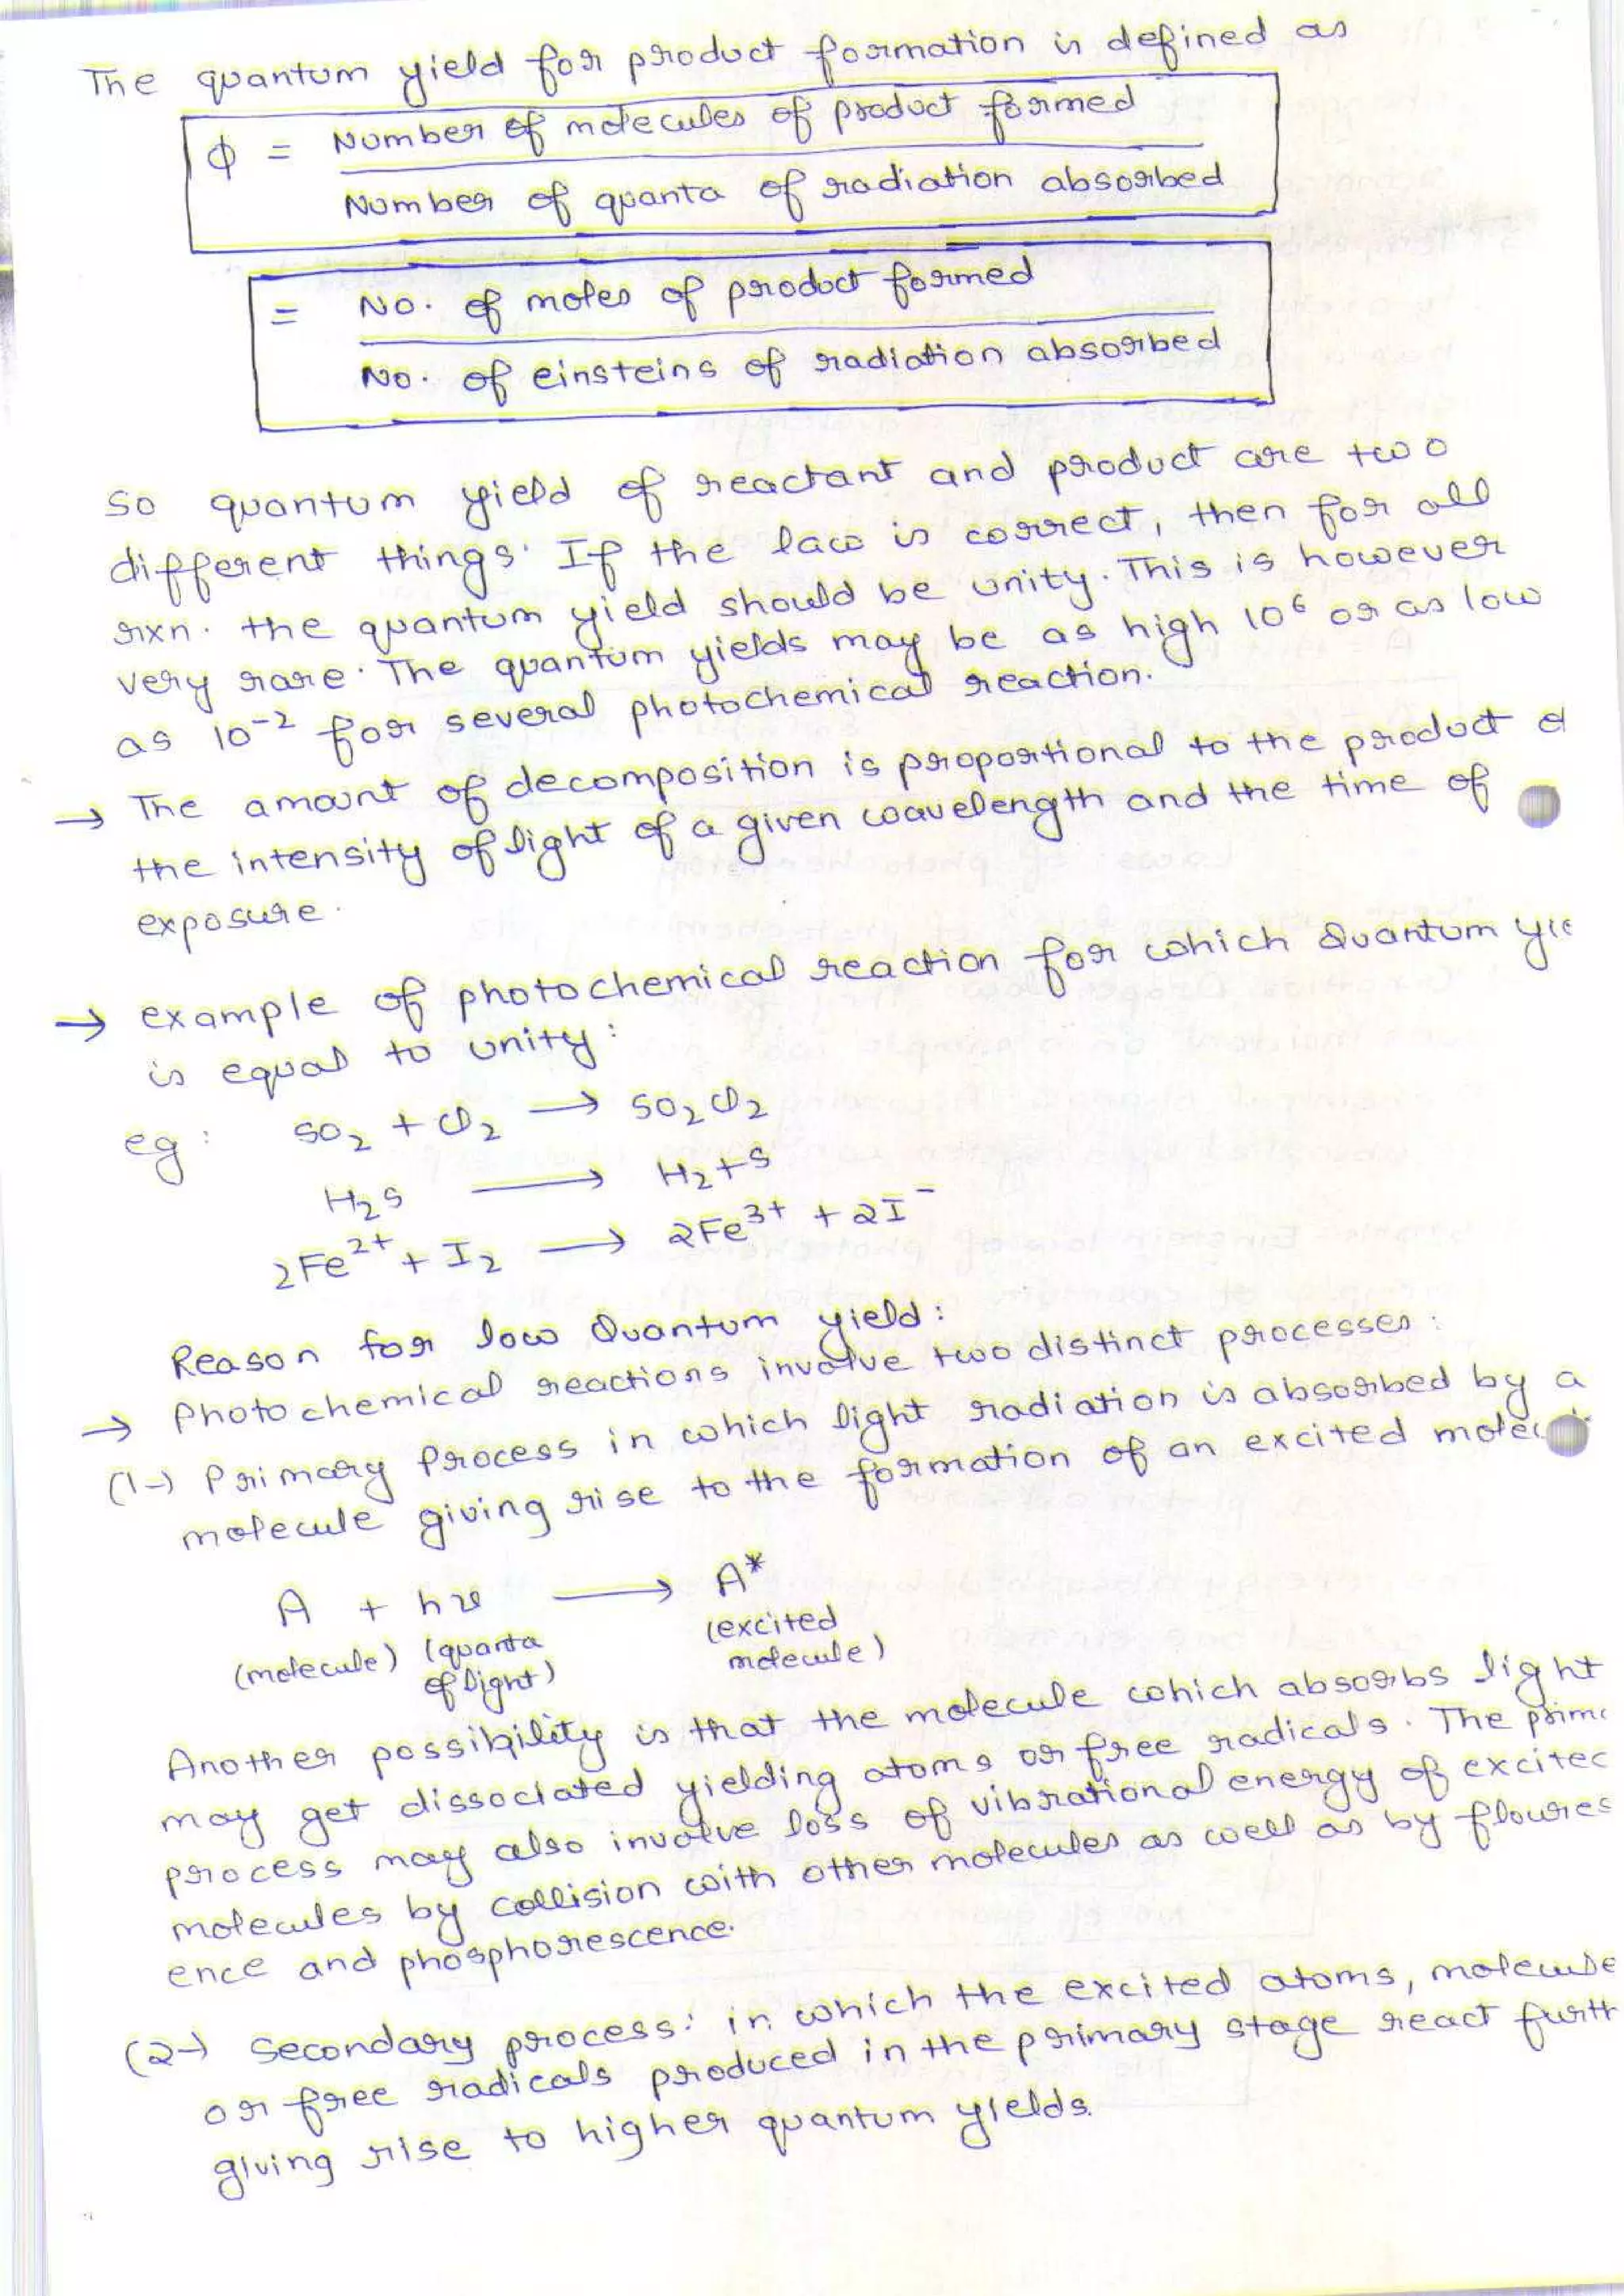 The quantum yield for product formation is defined as
ϕ = Number of molecules of product formed
Number of quanta of radiation absorbed
= No. of moles of product formed
No. of einsteins of radiation absorbed
So quantum yield of reactant and product are two
different things. If the law is correct, then for all
rxn. the quantum yield should be unity. This is however
very rare. The quantum yields may be as high 10⁶ or as low
as 10⁻² for several photochemical reaction.
→ The amount of decomposition is proportional to the product of
the intensity of light of a given wavelength and the time of
exposure.
→ example of photochemical reaction for which Quantum yie
is equal to unity:
eg: SO₂ + Cl₂ → SO₂Cl₂
H₂S → H₂+S
2Fe²⁺ + I₂ → 2Fe³⁺ + 2I⁻
Reason for low Quantum yield:
→ Photochemical reactions involve two distinct processes:
(1→) Primary Process in which light radiation is absorbed by a
molecule giving rise to the formation of an excited molec
A + hν → A*
(molecule) (quanta of light) (excited molecule)
Another possibility is that the molecule which absorbs light
may get dissociated yielding atoms or free radicals. The prima
process may also involve loss of vibrational energy of excited
molecules by collision with other molecules as well as by floures
ence and phosphorescence.
(2→ Secondary process: in which the excited atoms, molecule
or free radicals produced in the primary stage react furth
giving rise to higher quantum yields.